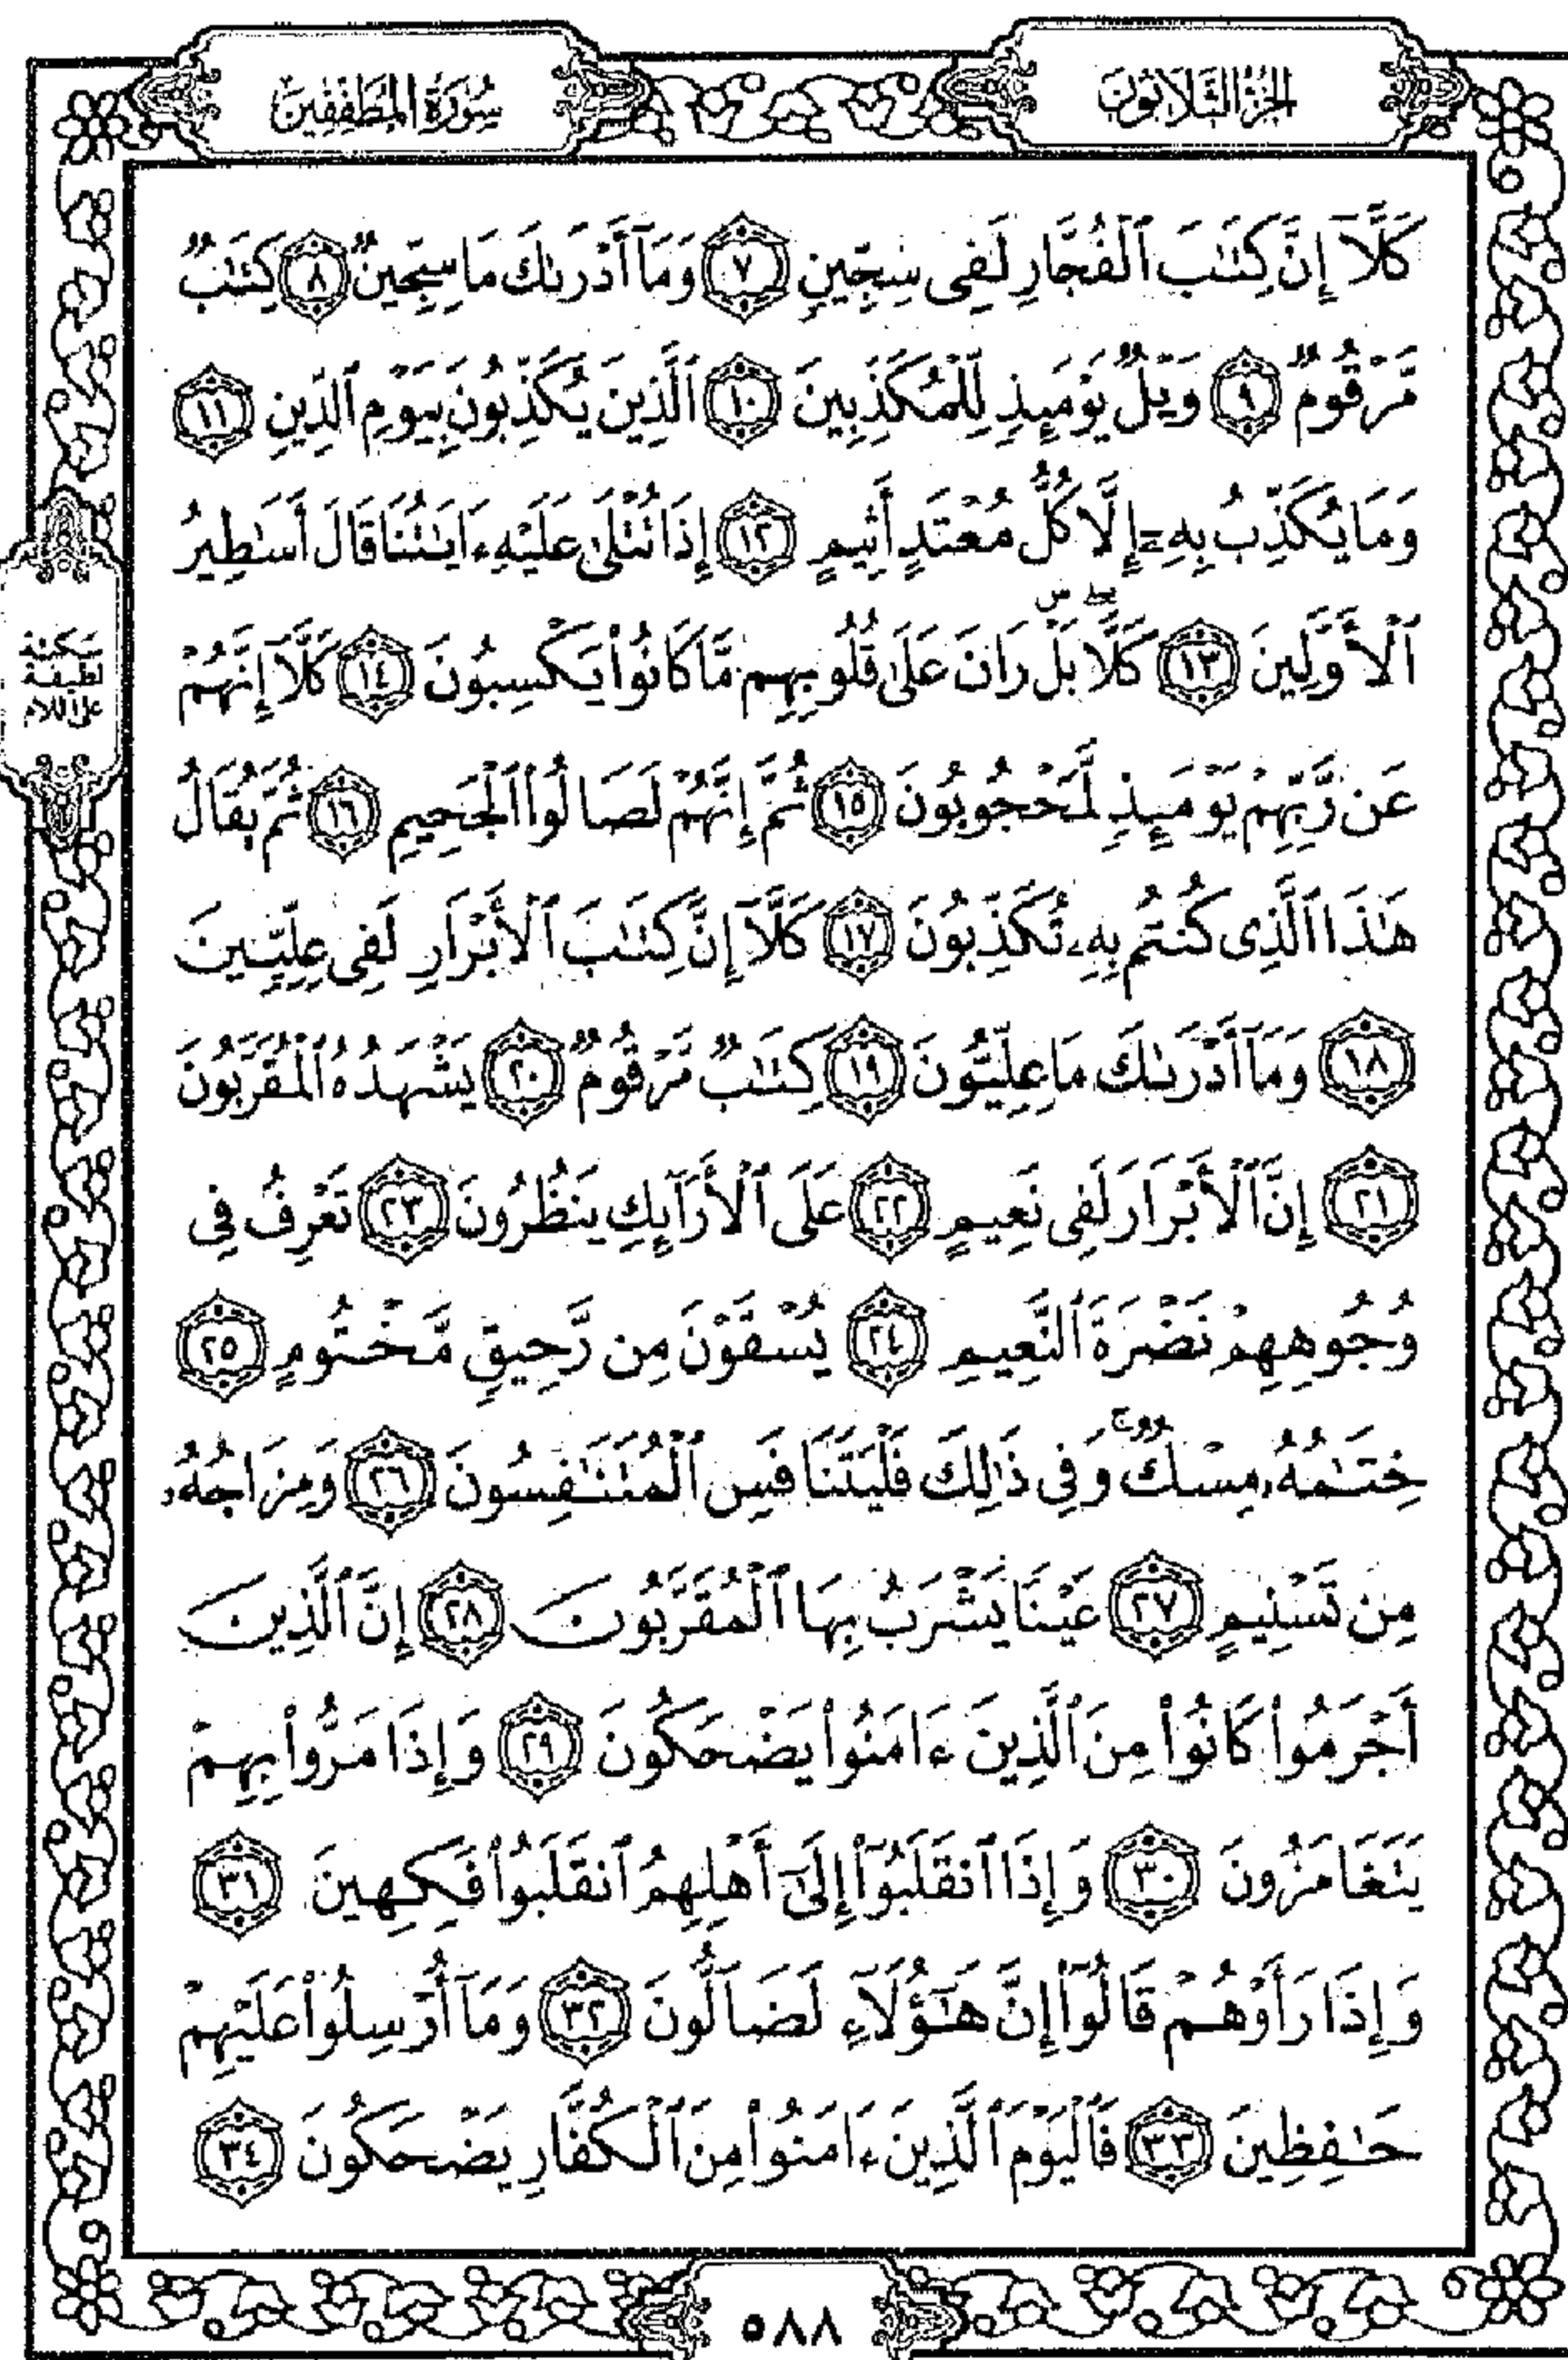 سُورَةُ المُطَفِّفِينَ
الجُزْءُ الثَّلَاثُونَ
كَلَّآ إِنَّ كِتَٰبَ ٱلْفُجَّارِ لَفِى سِجِّينٍ ٧ وَمَآ أَدْرَىٰكَ مَا سِجِّينٌ ٨ كِتَٰبٌ
مَّرْقُومٌ ٩ وَيْلٌ يَوْمَئِذٍ لِّلْمُكَذِّبِينَ ١٠ ٱلَّذِينَ يُكَذِّبُونَ بِيَوْمِ ٱلدِّينِ ١١
وَمَا يُكَذِّبُ بِهِۦٓ إِلَّا كُلُّ مُعْتَدٍ أَثِيمٍ ١٢ إِذَا تُتْلَىٰ عَلَيْهِ ءَايَٰتُنَا قَالَ أَسَٰطِيرُ
ٱلْأَوَّلِينَ ١٣ كَلَّا ۖ بَلْ ۜ رَانَ عَلَىٰ قُلُوبِهِم مَّا كَانُوا۟ يَكْسِبُونَ ١٤ كَلَّآ إِنَّهُمْ
عَن رَّبِّهِمْ يَوْمَئِذٍ لَّمَحْجُوبُونَ ١٥ ثُمَّ إِنَّهُمْ لَصَالُوا۟ ٱلْجَحِيمِ ١٦ ثُمَّ يُقَالُ
هَٰذَا ٱلَّذِى كُنتُم بِهِۦ تُكَذِّبُونَ ١٧ كَلَّآ إِنَّ كِتَٰبَ ٱلْأَبْرَارِ لَفِى عِلِّيِّينَ
١٨ وَمَآ أَدْرَىٰكَ مَا عِلِّيُّونَ ١٩ كِتَٰبٌ مَّرْقُومٌ ٢٠ يَشْهَدُهُ ٱلْمُقَرَّبُونَ
٢١ إِنَّ ٱلْأَبْرَارَ لَفِى نَعِيمٍ ٢٢ عَلَى ٱلْأَرَآئِكِ يَنظُرُونَ ٢٣ تَعْرِفُ فِى
وُجُوهِهِمْ نَضْرَةَ ٱلنَّعِيمِ ٢٤ يُسْقَوْنَ مِن رَّحِيقٍ مَّخْتُومٍ ٢٥
خِتَٰمُهُۥ مِسْكٌ ۚ وَفِى ذَٰلِكَ فَلْيَتَنَافَسِ ٱلْمُتَنَٰفِسُونَ ٢٦ وَمِزَاجُهُۥ
مِن تَسْنِيمٍ ٢٧ عَيْنًا يَشْرَبُ بِهَا ٱلْمُقَرَّبُونَ ٢٨ إِنَّ ٱلَّذِينَ
أَجْرَمُوا۟ كَانُوا۟ مِنَ ٱلَّذِينَ ءَامَنُوا۟ يَضْحَكُونَ ٢٩ وَإِذَا مَرُّوا۟ بِهِمْ
يَتَغَامَزُونَ ٣٠ وَإِذَا ٱنقَلَبُوٓا۟ إِلَىٰٓ أَهْلِهِمُ ٱنقَلَبُوا۟ فَكِهِينَ ٣١
وَإِذَا رَأَوْهُمْ قَالُوٓا۟ إِنَّ هَٰٓؤُلَآءِ لَضَآلُّونَ ٣٢ وَمَآ أُرْسِلُوا۟ عَلَيْهِمْ
حَٰفِظِينَ ٣٣ فَٱلْيَوْمَ ٱلَّذِينَ ءَامَنُوا۟ مِنَ ٱلْكُفَّارِ يَضْحَكُونَ ٣٤
سكتة
لطيفة
على اللام
٥٨٨